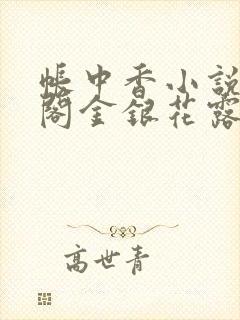 帐中香小説
閣金銀花露
高世青